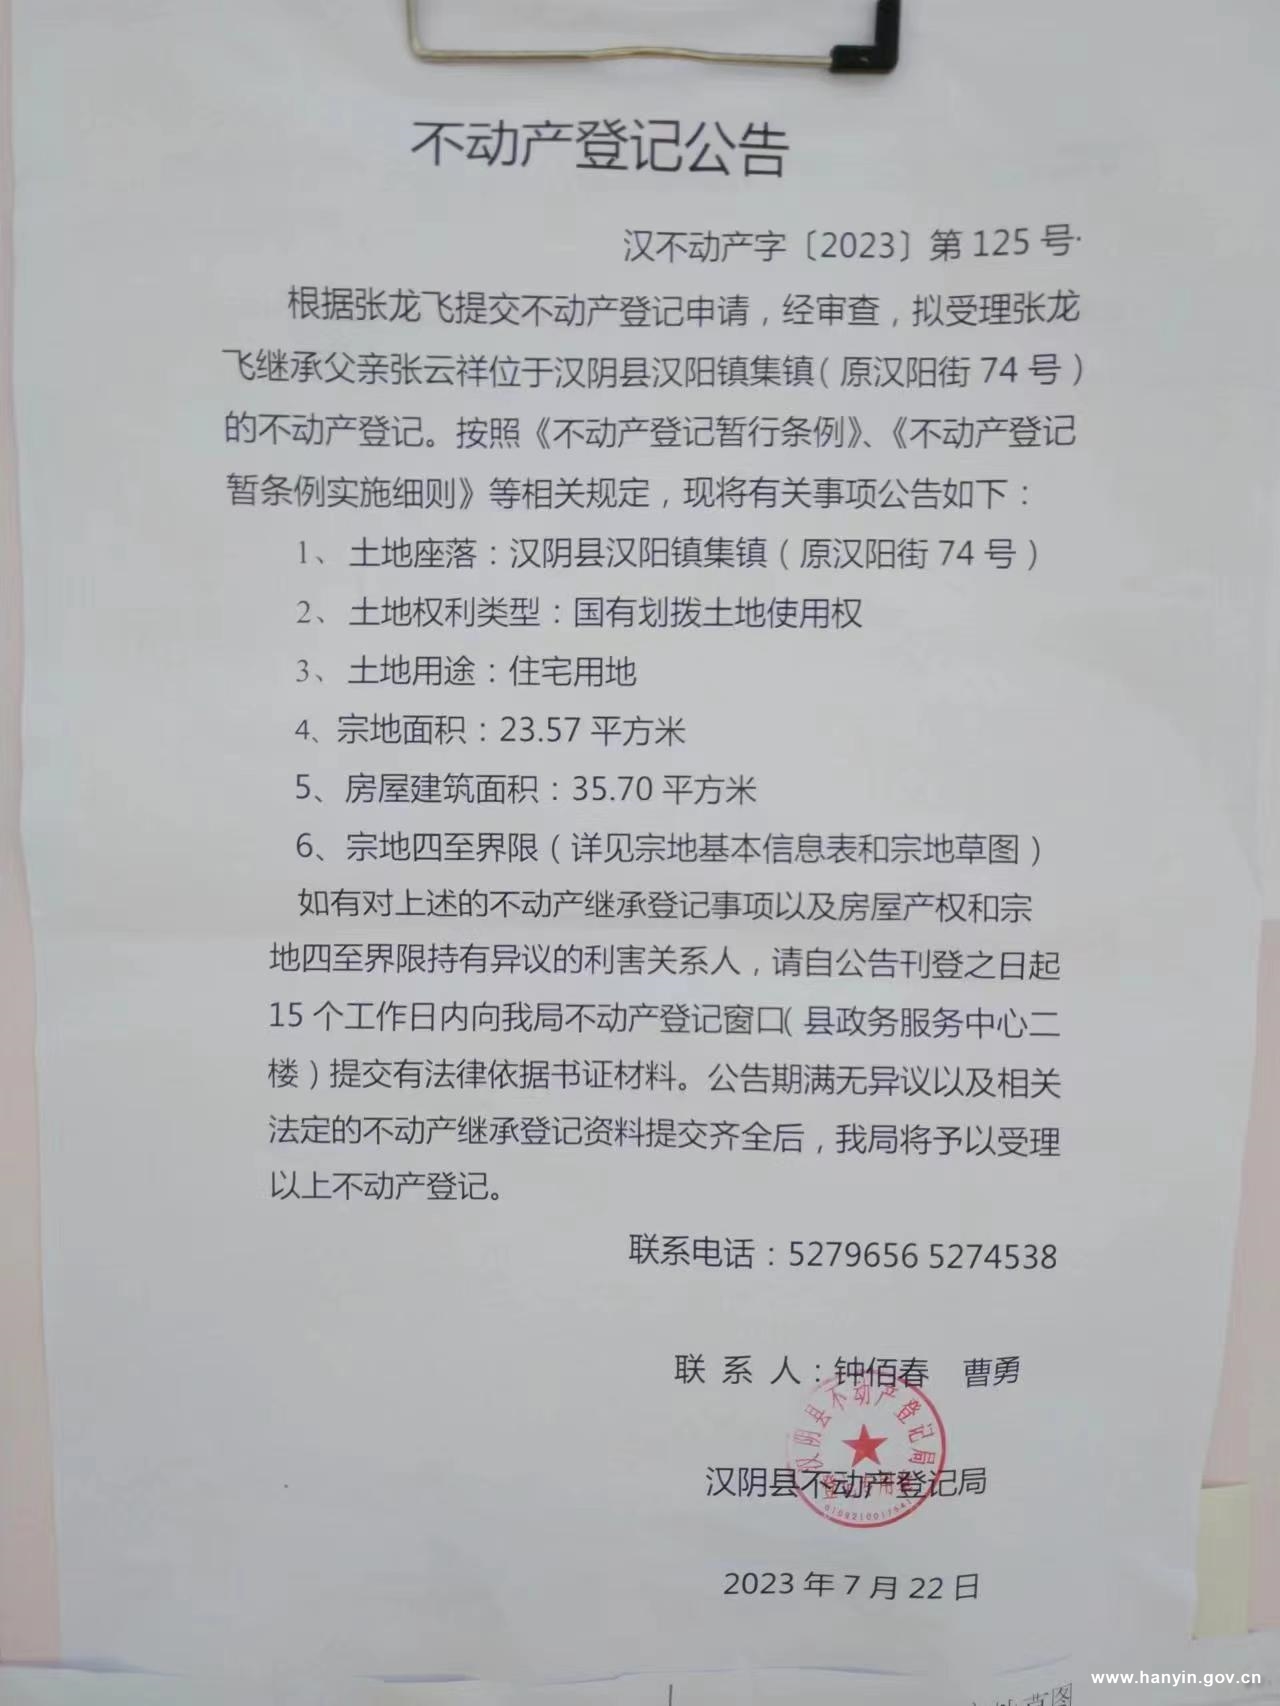 不动产登记公告
汉不动产字〔2023〕第125号
根据张龙飞提交不动产登记申请，经审查，拟受理张龙
飞继承父亲张云祥位于汉阴县汉阳镇集镇（原汉阳街74号）
的不动产登记。按照《不动产登记暂行条例》、《不动产登记
暂条例实施细则》等相关规定，现将有关事项公告如下：
1、土地座落：汉阴县汉阳镇集镇（原汉阳街74号）
2、土地权利类型：国有划拨土地使用权
3、土地用途：住宅用地
4、宗地面积：23.57平方米
5、房屋建筑面积：35.70平方米
6、宗地四至界限（详见宗地基本信息表和宗地草图）
如有对上述的不动产继承登记事项以及房屋产权和宗
地四至界限持有异议的利害关系人，请自公告刊登之日起
15个工作日内向我局不动产登记窗口（县政务服务中心二
楼）提交有法律依据书证材料。公告期满无异议以及相关
法定的不动产继承登记资料提交齐全后，我局将予以受理
以上不动产登记。
联系电话：5279656 5274538
联 系 人：钟佰春 曹勇
汉阴县不动产登记局
汉阴县不动产登记局
登记专用章
2023年7月22日
www.hanyin.gov.cn
草图